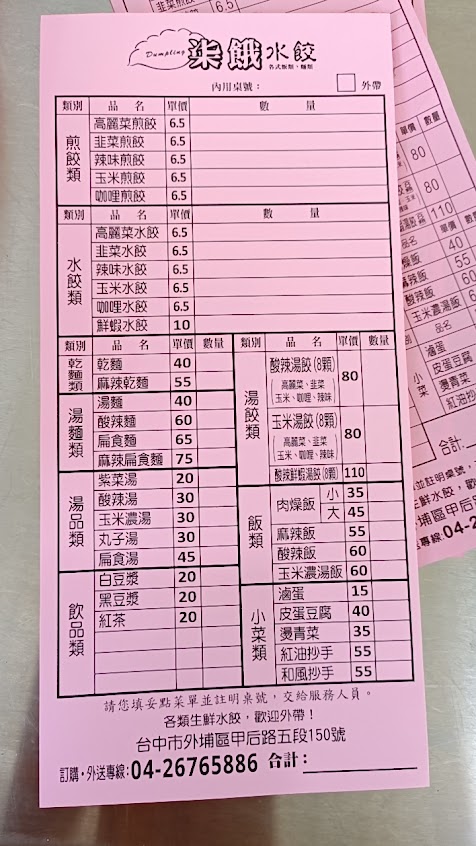 Dumpling 柒餓水餃
各式飯類、麵類
內用桌號： 外帶
類別 品名 單價 數量
煎餃類
高麗菜煎餃 6.5
韭菜煎餃 6.5
辣味煎餃 6.5
玉米煎餃 6.5
咖哩煎餃 6.5
類別 品名 單價 數量
水餃類
高麗菜水餃 6.5
韭菜水餃 6.5
辣味水餃 6.5
玉米水餃 6.5
咖哩水餃 6.5
鮮蝦水餃 10
類別 品名 單價 數量
乾麵類
乾麵 40
麻辣乾麵 55
湯麵類
湯麵 40
酸辣麵 60
扁食麵 65
麻辣扁食麵 75
湯品類
紫菜湯 20
酸辣湯 30
玉米濃湯 30
丸子湯 30
扁食湯 45
飲品類
白豆漿 20
黑豆漿 20
紅茶 20
類別 品名 單價 數量
湯餃類
酸辣湯餃(8顆) 80
(高麗菜、韭菜
玉米、咖哩、辣味)
玉米湯餃(8顆) 80
(高麗菜、韭菜
玉米、咖哩、辣味)
酸辣鮮蝦湯餃(8顆) 110
飯類
肉燥飯 小 35
大 45
麻辣飯 55
酸辣飯 60
玉米濃湯飯 60
小菜類
滷蛋 15
皮蛋豆腐 40
燙青菜 35
紅油抄手 55
和風抄手 55
請您填妥點菜單並註明桌號，交給服務人員。
各類生鮮水餃，歡迎外帶！
台中市外埔區甲后路五段150號
訂購・外送專線:04-26765886 合計：
韭菜煎餃 6.5
單價 數量
80
80
110
單價 數量
品名
40
55
酸辣飯 60
玉米濃湯飯
品名
小菜
滷蛋
皮蛋豆腐
燙青菜
紅油抄
合計：